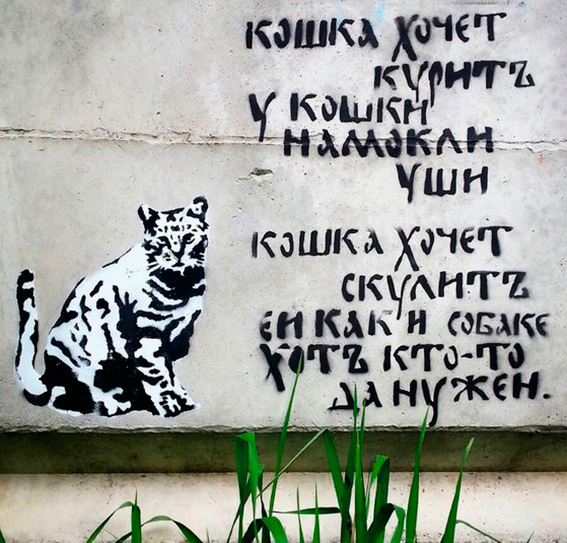 КОШКА ХОЧЕТ
КУРИТЪ
У КОШКИ
НАМОКЛИ
УШИ
КОШКА ХОЧЕТ
СКУЛИТЪ
ЕИ КАК И СОБАКЕ
ХОТЪ КТО-ТО
ДА НУЖЕН.